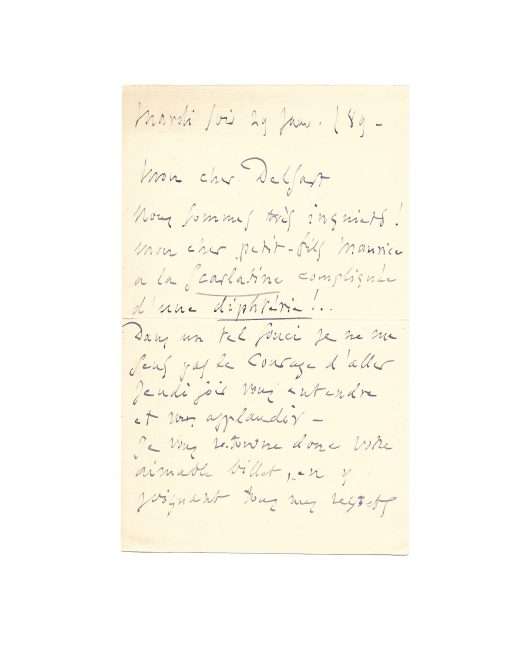 Mardi soir 29 Janv. /89 -
Mon cher Delsart
Nous sommes très inquiets !
Mon cher petit-fils Maurice
a la scarlatine compliquée
d'une diphtérie !..
Dans un tel souci je ne me
sens pas le courage d'aller
Jeudi soir vous entendre
et vous applaudir -
Je vous retourne donc votre
aimable billet, en y
joignant tous mes regrets